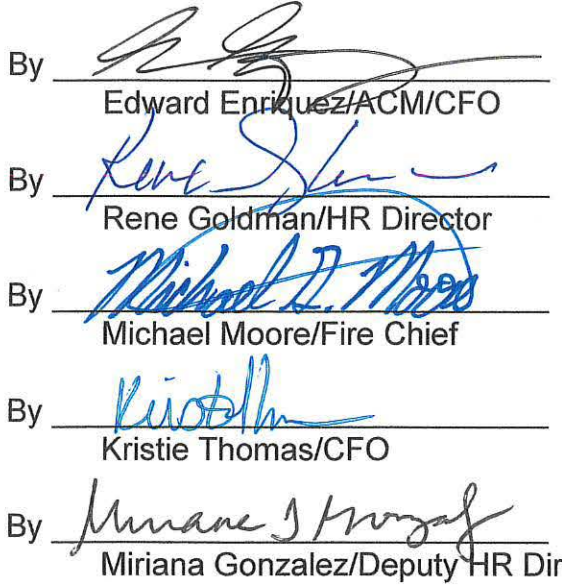 By
Edward Enriquez/ACM/CFO
By Rene
Rene Goldman/HR Director
By Michael G. Moore
Michael Moore/Fire Chief
By
Kristie Thomas/CFO
By
Miriana Gonzalez/Deputy HR Dir